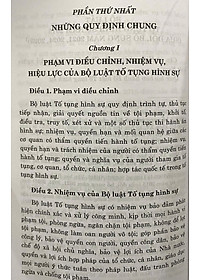 PHẦN THỨ NHẤT
NHỮNG QUY ĐỊNH CHUNG
Chương I
PHẠM VI ĐIỀU CHỈNH, NHIỆM VỤ,
HIỆU LỰC CỦA BỘ LUẬT TỐ TỤNG HÌNH SỰ
Điều 1. Phạm vi điều chỉnh
Bộ luật Tố tụng hình sự quy định trình tự, thủ tục
tiếp nhận, giải quyết nguồn tin về tội phạm, khởi tố,
điều tra, truy tố, xét xử và một số thủ tục thi hành án
hình sự; nhiệm vụ, quyền hạn và mối quan hệ giữa các
cơ quan có thẩm quyền tiến hành tố tụng; nhiệm vụ,
quyền hạn và trách nhiệm của người có thẩm quyền tiến
hành tố tụng; quyền và nghĩa vụ của người tham gia tố
tụng, cơ quan, tổ chức, cá nhân; hợp tác quốc tế trong tố
tụng hình sự.
Điều 2. Nhiệm vụ của Bộ luật Tố tụng hình sự
Bộ luật Tố tụng hình sự có nhiệm vụ bảo đảm phát
hiện chính xác và xử lý công minh, kịp thời mọi hành vi
phạm tội, phòng ngừa, ngăn chặn tội phạm, không để lọt
tội phạm, không làm oan người vô tội; góp phần bảo vệ
công lý, bảo vệ quyền con người, quyền công dân, bảo vệ
chế độ xã hội chủ nghĩa, bảo vệ lợi ích của Nhà nước,
quyền và lợi ích hợp pháp của tổ chức, cá nhân, giáo dục
mọi người ý thức tuân theo pháp luật, đấu tranh